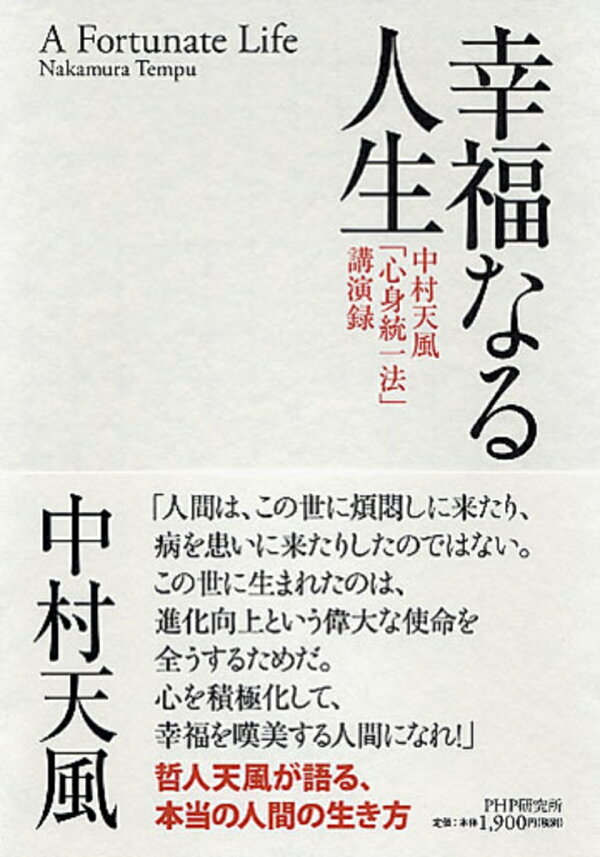 A Fortunate Life
Nakamura Tempu
幸福なる
人生
中村天風
「心身統一法」
講演録
中村天風
「人間は、この世に煩悶しに来たり、
病を患いに来たりしたのではない。
この世に生まれたのは、
進化向上という偉大な使命を
全うするためだ。
心を積極化して、
幸福を嘆美する人間になれ!」
哲人天風が語る、
本当の人間の生き方
PHP研究所
定価:本体1,900円(税別)